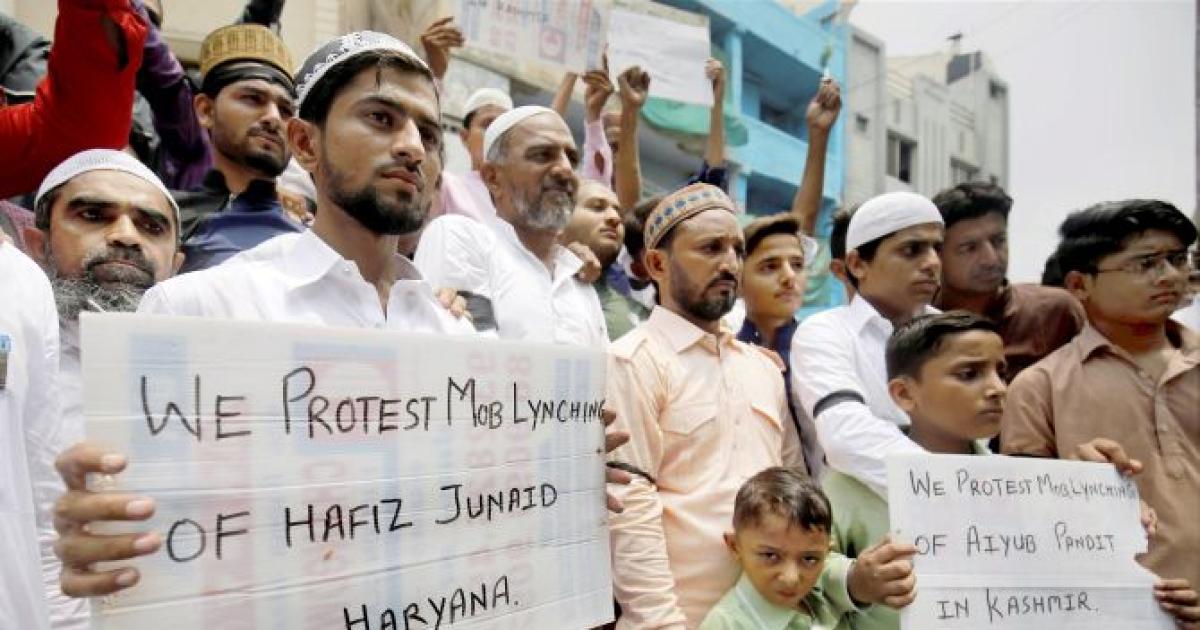 WE PROTEST MOB LYNCHING
OF HAFIZ JUNAID
HARYANA.
WE PROTEST MOB LYNCHING
OF AIYUB PANDIT
IN KASHMIR.